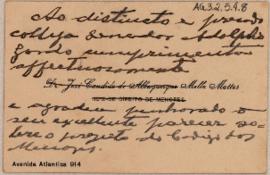 AG.3.2.5.9.8
Ao distincto e presado
collega senador Adolpho
Gordo cumprimenta
affectuosamente
Dr. José Candido de Albuquerque Mello Mattos
JUIZ DE DIREITO DE MENORES
e agradece penhorado o
seu excellente parecer so-
bre o projecto do Codigo dos
Menores.
Avenida Atlantica 914